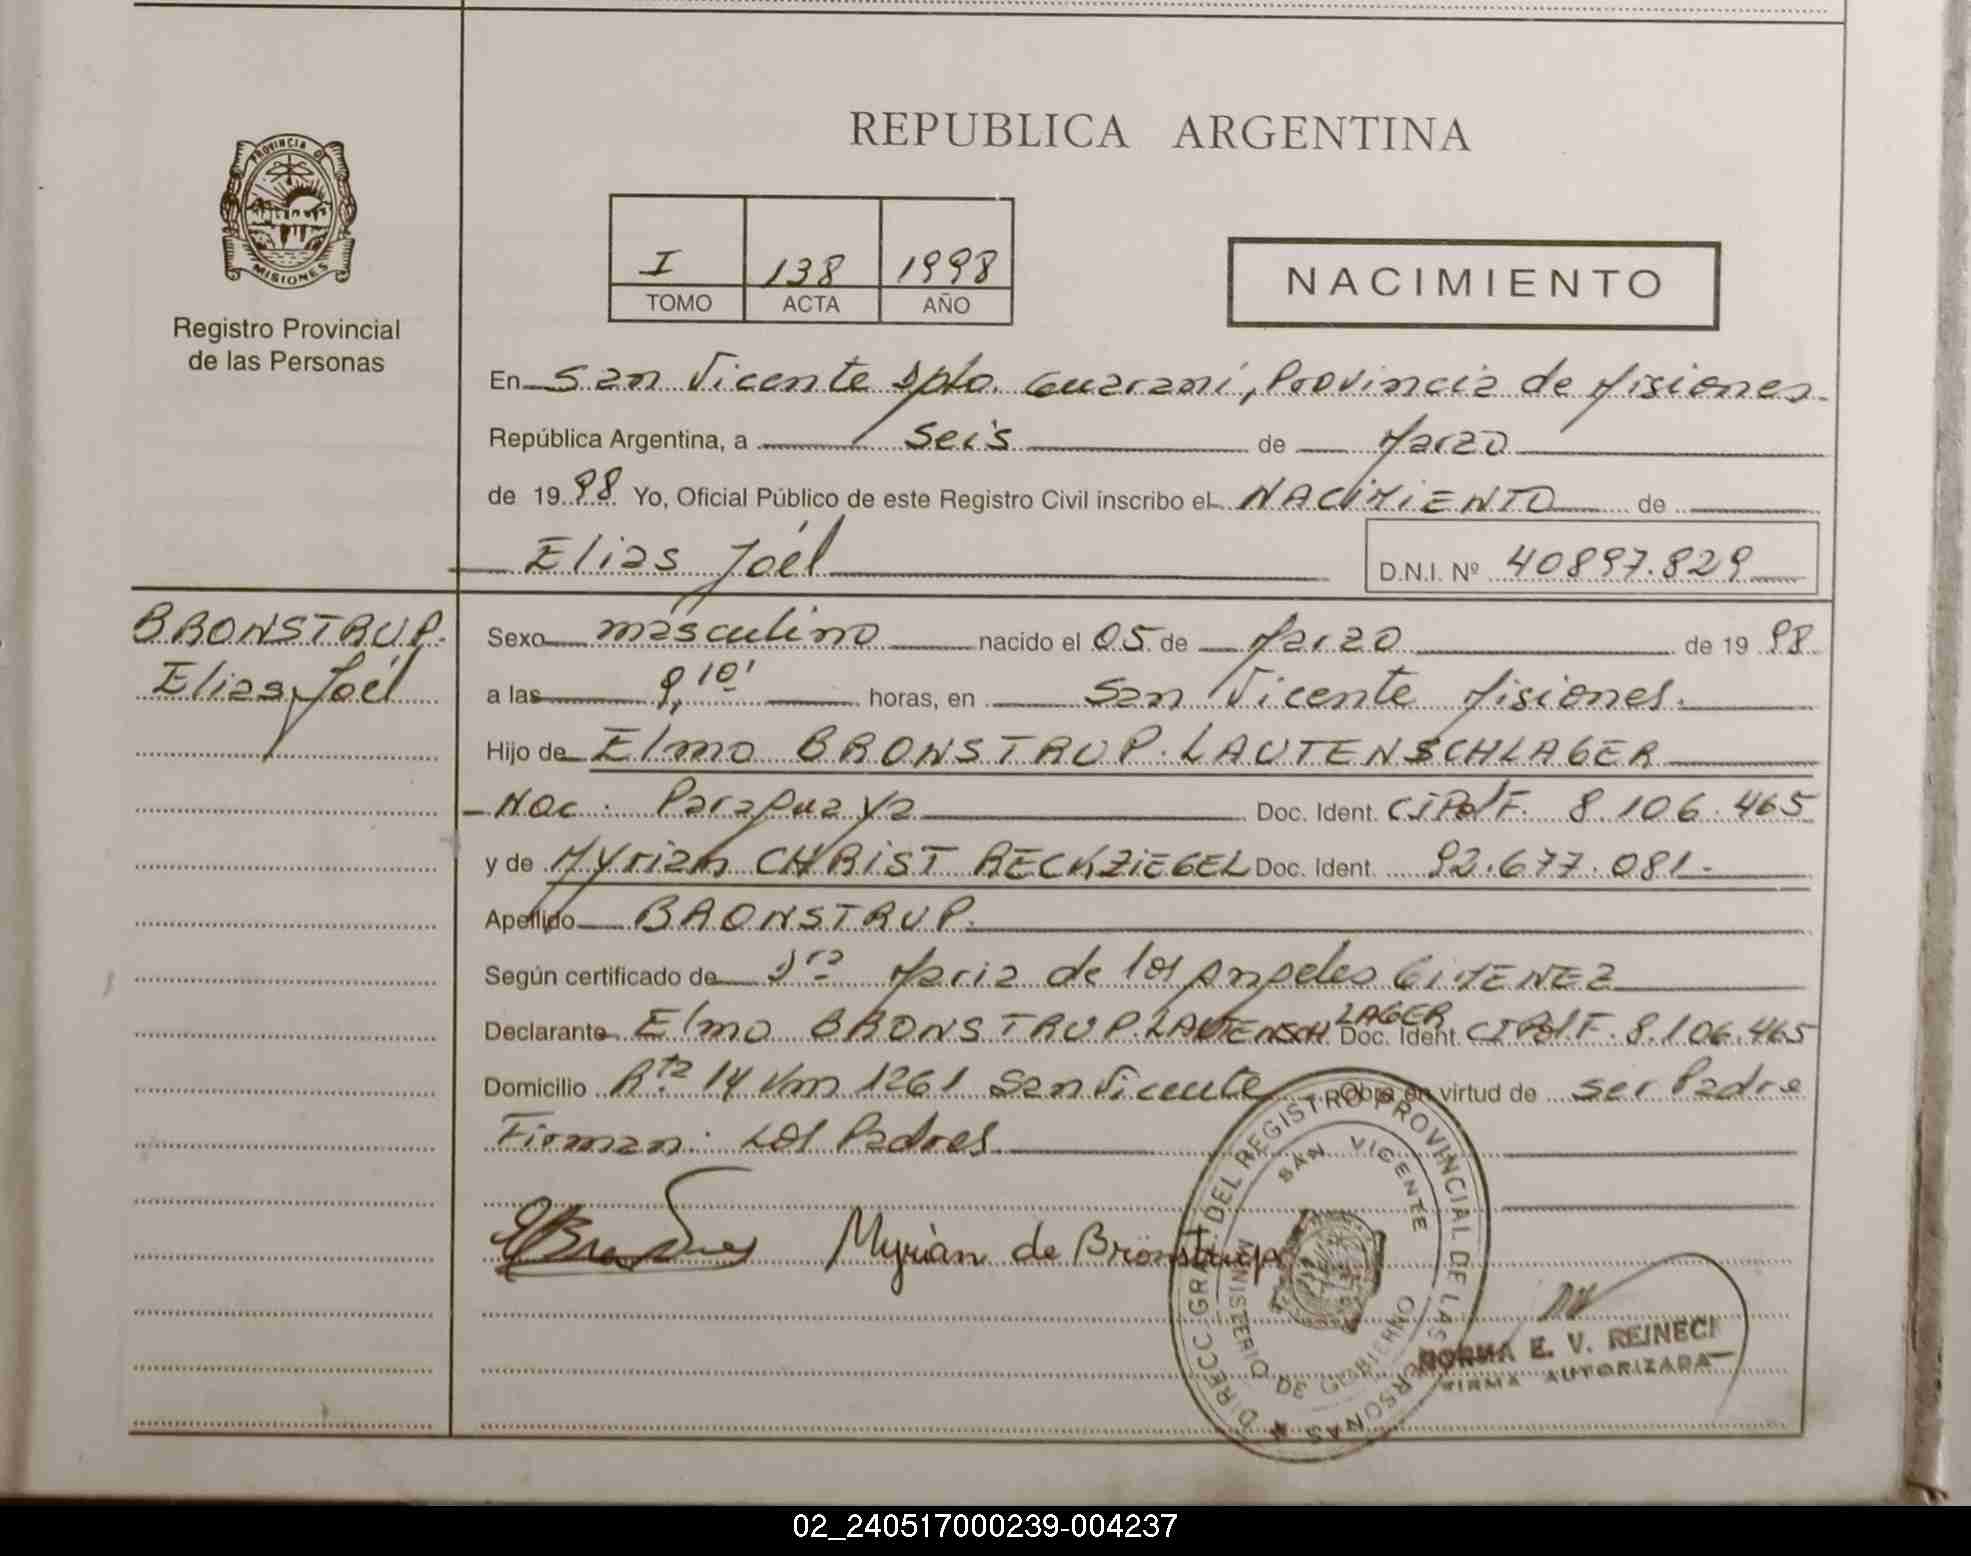 REPUBLICA ARGENTINA
PROVINCIA D
MISIONES
Registro Provincial
de las Personas
I 138 1998
TOMO ACTA AÑO
NACIMIENTO
En San Vicente Dpto. Guaraní, Provincia de Misiones.
República Argentina, a Seis de Marzo
de 19 98 Yo, Oficial Público de este Registro Civil inscribo el NACIMIENTO de
Elias Joél D.N.I. Nº 40897.829
BRONSTRUP.
Elias Joél
Sexo masculino nacido el 05 de Marzo de 19 98
a las 9,10' horas, en San Vicente Misiones.
Hijo de Elmo BRONSTRUP. LAUTENSCHLAGER
Nac: Paraguaya Doc. Ident. CIPolF. 8.106.465
y de Myrian CHRIST RECKZIEGEL Doc. Ident. 92.677.081.-
Apellido BRONSTRUP.
Según certificado de Dra Maria de los Angeles GIMENEZ
Declarante Elmo BRONSTRUP. LAUTENSCHLAGER Doc. Ident. CIPol.F. 8.106.465
Domicilio Rta 14 Km 1261 San Vicente Obra en virtud de ser Padre
Firman: Los Padres
Myrian de Bronstrup
DIRECC GRAL DEL REGISTRO PROVINCIAL DE LAS PERSONAS
SAN VICENTE
MINISTERIO DE GOBIERNO
NORMA E. V. REINECK
FIRMA AUTORIZADA
02_240517000239-004237